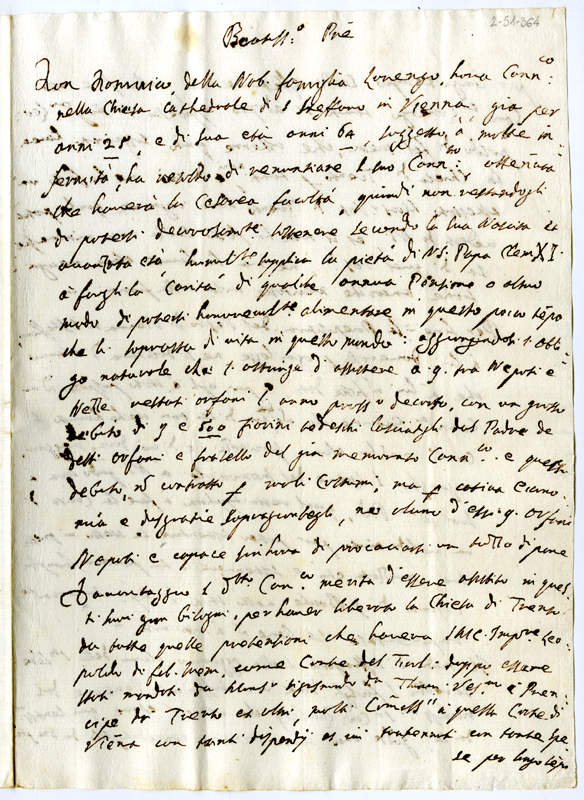 2-51-364
Beatss.º Pre
Don Dominico, della Nob. famiglia Lorenzo, hora Cann.co
nella Chiesa Cathedrale di S. Steffano in Vienna, già per
anni 25, e di sua età anni 64, soggetto à molte in-
fermità, ha resolto di renuntiare il suo Cann.to, ottenuta
che haverà la Cesarea facoltà, quindi non restandogli
di potersi decorosamte sostenere secondo la sua Nascita et
avanzata età, humilte supplica la pietà di N.S. Papa Clem XI.
à fargli la Carità di qualche annua Pensione o altro
modo di potersi honorevolte alimentare in questo poco tēpo
che li soprasta di vita in questo mondo: aggiungendosi l'obli-
go naturale che l'astringa d'assistere a 9. tra Nepoti e
Nette restati orfani l'anno pross.o decorso, con un grosso
debito di 9 e 500 fiorini tedeschi lasciatogli dal Padre de
detti orfani e fratello del già menzionato Cann.co e questo
debito, nō contratto p mali Costumi, ma p cativa Econo-
mia e disgratie sopragiuntegli, ne alcuno d'essi 9. orfani
Nepoti è capace sin'hora di procaciarsi un tozzo di pane
Davantaggio il dtto Can.co merita d'essere assistito in ques-
ti suoi gran bisogni, per haver liberata la Chiesa di Trento
da tutte quelle pretensioni che haveva S.M.C. Impre Leo-
poldo di fel. mem. come Conte del Tirol: doppo essere
stati mandati da Mons.r Sigismondo da Thunn Ves.vo e Pren-
cipe di Trento et altri, molti Comiss.rii à questa Corte di
Viēna con tanti dispendij et ivi trattenuti con tante spe-
se per lungo tēpo